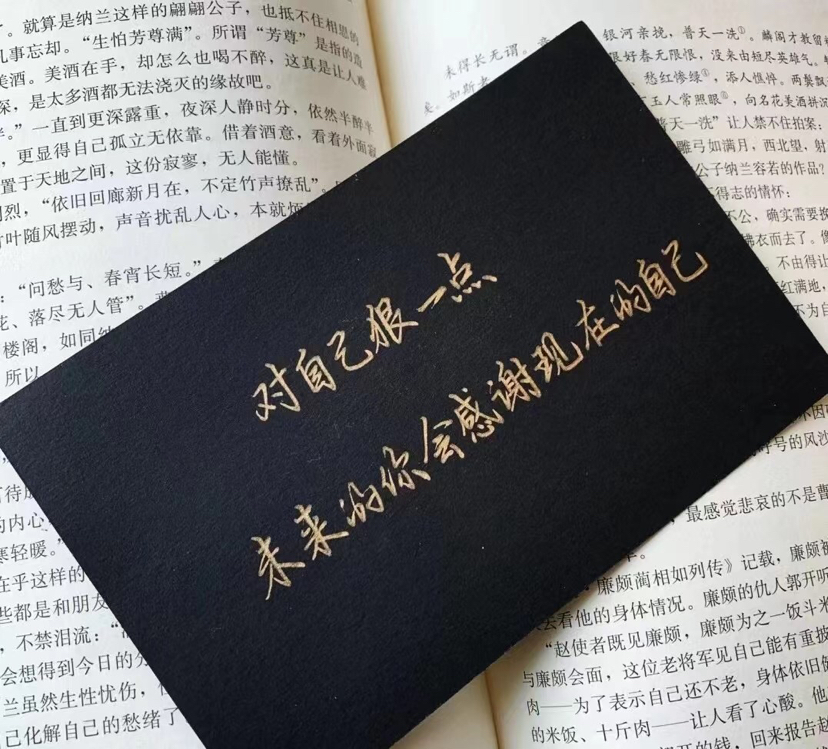 。就算是纳兰这样的翩翩公子，也抵不住相思的
凡事忘却。“生怕芳尊满”。所谓“芳尊”是指的造
美酒。美酒在手，却怎么也喝不醉，这真是让人难
深，是太多酒都无法浇灭的缘故吧。
。”一直到更深露重，夜深人静时分，依然半醉半
，更显得自己孤立无依靠。借着酒意，看着外面寂
置于天地之间，这份寂寥，无人能懂。
烈，“依旧回廊新月在，不定竹声撩乱”。
竹叶随风摆动，声音扰乱人心，本就烦
：“问愁与、春宵长短。”
花、落尽无人管”。
楼阁，如同纳
所以
对自己狠一点
未来的你会感谢现在的自己
的内心
寒轻暖。”
在乎这样的
些都是和朋友
，不禁泪流：“
会想得到今日的分
兰虽然生性忧伤，但
己化解自己的愁绪了
未得长无谓。竟
银河亲挽，普天一洗①。麟阁才教留粉
矣。如斯者
限好春无限恨，没来由短尽英雄气。
愁红惨绿④，添人憔悴。两鬓飘
玉人常照眼⑤，向名花美酒拼沉
普天一洗”让人禁不住拍案：
雕弓如满月，西北望，射
公子纳兰容若的作品？
得志的情怀：
不公，确实需要挽
拂衣而去了。像
不由得让
红满地，
不为自
不因
号的风沙
，最感觉悲哀的不是曹
廉颇蔺相如列传》记载，廉颇被
去看他的身体情况。廉颇的仇人郭开听
“赵使者既见廉颇，廉颇为之一饭斗米
与廉颇会面，这位老将军见自己能有重披
肉——为了表示自己还不老，身体依旧健
的米饭、十斤肉——让人看了心酸。他
郭开的钱，回来报告赵